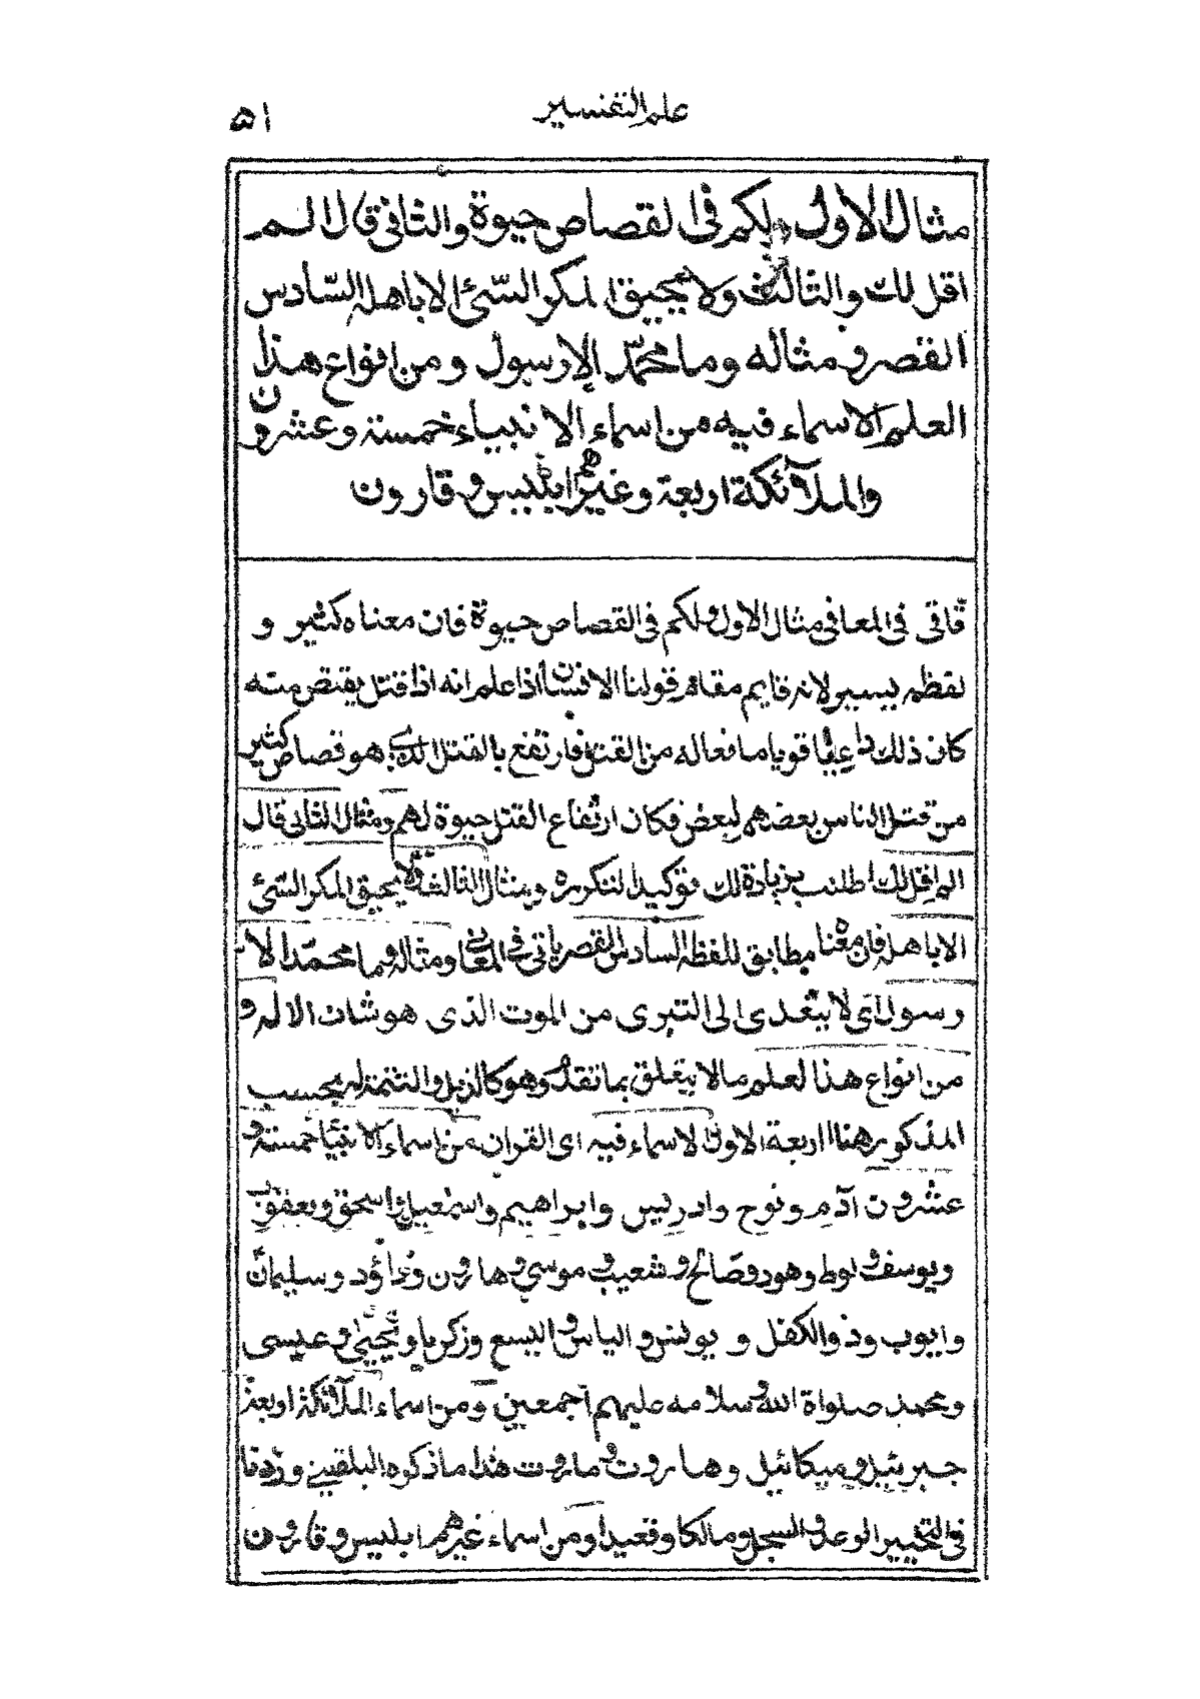 علم التفسير ٥١
مثال الاول ولكم فى القصاص حيوة والثانى قال الم
اقل لك والثالث ولا يحيق المكر السّئ الا باهله السّادس
القصر ومثاله وما محمّد الا رسول ومن انواع هذا
العلم الاسماء فيه من اسماء الانبياء خمسة وعشرون
والملآئكة اربعة وغيرهم ابليس وقارون
قاتى فى المعانى مثال الاول ولكم فى القصاص حيوة فان معناه كثير و
لفظه يسير لانه قايم مقام قولنا الانسان اذا علم انه اذا قتل يقتص منه
كان ذلك داعيا قويا مانعاله من القتل فارتفع بالقتل الذى هو قصاص كثير
من قتل الناس بعضهم لبعض فكان ارتفاع القتل حيوة لهم ومثال الثانى قال
الم اقل لك اطلنب بزيادة لك توكيدا لتكرره ومثال الثالث ولا يحيق المكر السّئ
الا باهله فان معناه مطابق للفظه السادس القصر ياتى فى المعانى ومثاله وما محمّد الا
رسول اى لا يتعدى الى التبرى من الموت الذى هو شان الاله و
من انواع هذا لعلم مالا يتعلق بما تقدم وهو كالذيل والتتمة له بحسب
المذكور هنا اربعة الاول لاسماء فيه اى القران من اسماء الانبيا خمسة و
عشرون آدم ونوح وادريس وابراهيم واسمعيل واسحق ويعقوب
ويوسف ولوط وهود وصالح وشعيب وموسى وهارون وداؤد وسليمان
وايوب وذو الكفل و يونس والياس واليسع وزكريا ويحيىٰ وعيسى
ومحمد صلواة الله وسلامه عليهم اجمعين ومن اسماء الملآئكة اربعة
جبرئيل وميكائيل وهاروت وماروت هذا ما ذكره البلقينى وزدنا
فى التحبير الوعد والسجل ومالكا وقعيدا ومن اسماء غيرهم ابليس وقارون